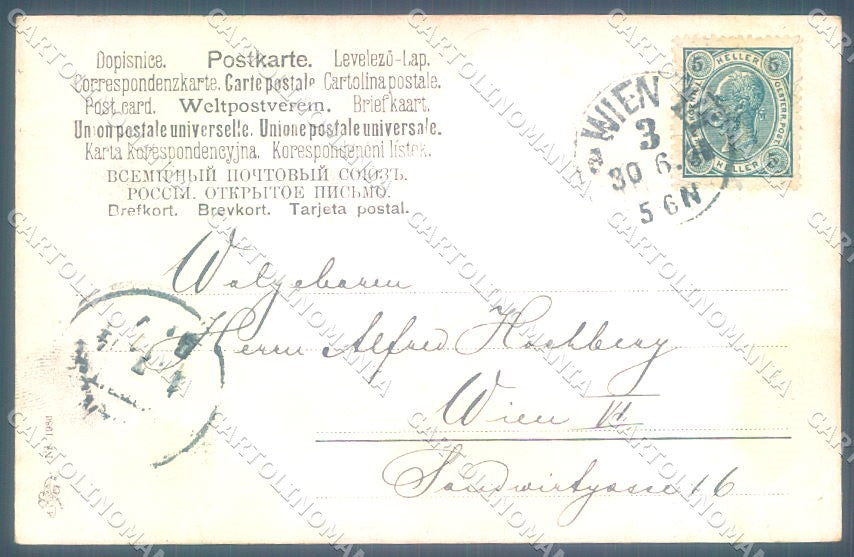 Dopisnice. Postkarte. Levelező-Lap.
Correspondenzkarte. Carte postale. Cartolina postale.
Post card. Weltpostverein. Briefkaart.
Union postale universelle. Unione postale universale.
Karta Korespondencyjna. Korespondenční lístek.
ВСЕМІРНЫЙ ПОЧТОВЫЙ СОЮЗЪ.
РОССІЯ. ОТКРЫТОЕ ПИСЬМО.
Brefkort. Brevkort. Tarjeta postal.
5 HELLER 5
OESTERR. POST
5 HELLER 5
WIEN
3
30 6.
5 6N
Wolgeboren
Herrn Alfred Hochberg
Wien VI
Sandwirtgasse 16
CARTOLINOMANIA